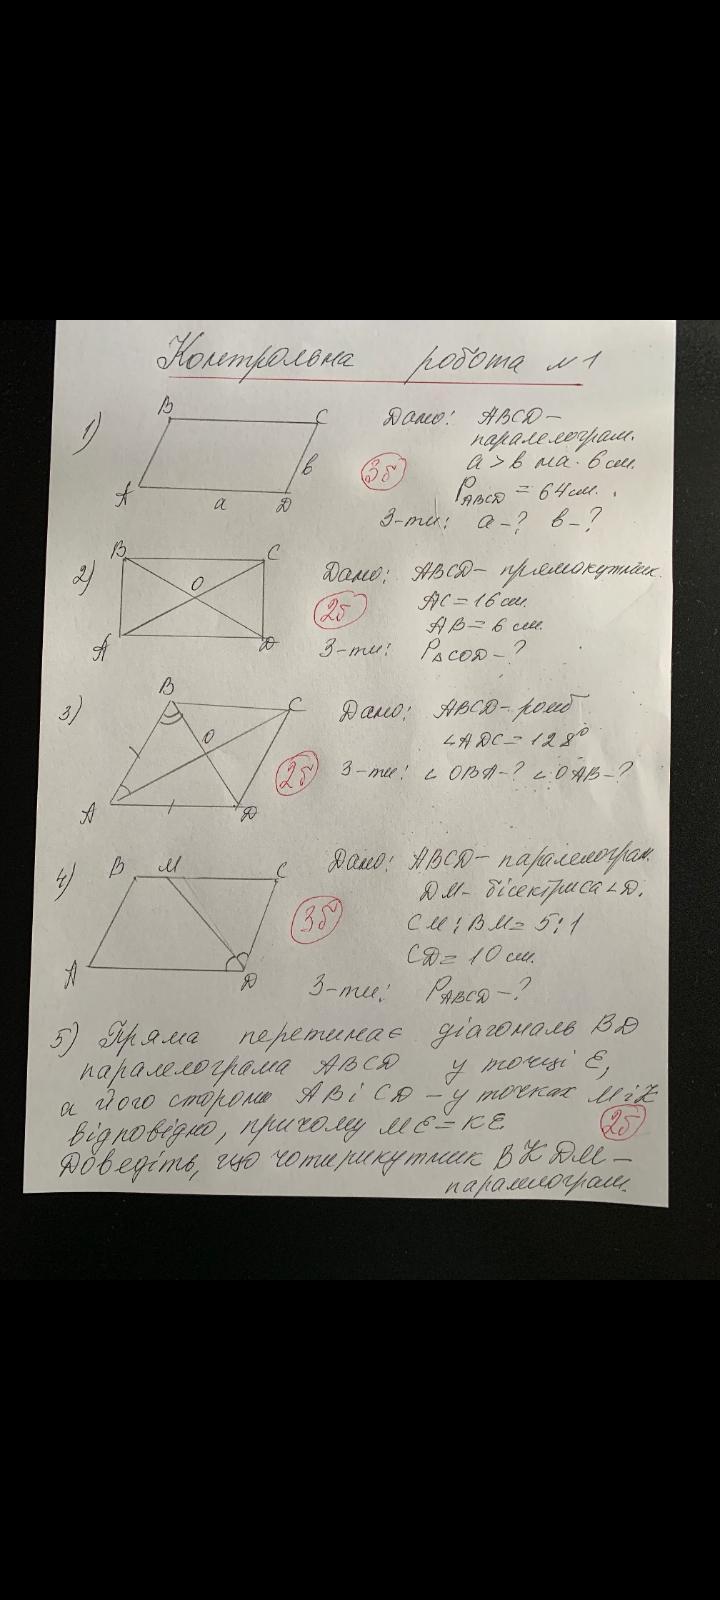 Контрольна робота №1
1) B C Дано: ABCD –
паралелограм.
a > b на 6 см.
3б b
P ABCD = 64 см.
A a D З-ти: a – ? b – ?
2) B C O Дано: ABCD – прямокутник.
2б AC = 16 см.
AB = 6 см.
A D З-ти: P△COD – ?
3) B C O Дано: ABCD – ромб
∠ADC = 128°
2б З-ти: ∠OBA – ? ∠OAB – ?
A D
4) B M C Дано: ABCD – паралелограм.
DM – бісектриса ∠D.
3б CM : BM = 5 : 1
CD = 10 см.
A D З-ти: P ABCD – ?
5) Пряма перетинає діагональ BD
паралелограма ABCD у точці E,
а його сторони AB і CD – у точках M і K
відповідно, причому ME = KE 2б
Доведіть, що чотирикутник BKDM –
паралелограм.